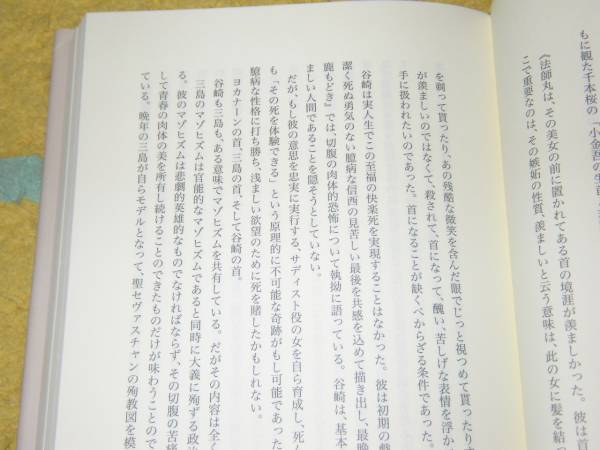 もに観た千本桜の「小金吾の生首
《法師丸は、その美女の前に置かれてある首の境涯が羨ましかった。彼は首
こで重要なのは、その嫉妬の性質、羨ましいと云う意味は、此の女に髪を結っ
を剃って貰ったり、あの残酷な微笑を含んだ眼でじっと視つめて貰ったりす
が羨ましいのではなくて、殺されて、首になって、醜い、苦しげな表情を浮か
手に扱われたいのであった。首になることが欠くべからざる条件であった。
谷崎は実人生でこの至福の快楽死を実現することはなかった。彼は初期の戯
潔く死ぬ勇気のない臆病な信西の見苦しい最後を共感を込めて描き出し、最晩
鹿もどき』では、切腹の肉体的恐怖について執拗に語っている。谷崎は、基本
ましい人間であることを隠そうとしていない。
だが、もし彼の意思を忠実に実行する、サディスト役の女を自ら育成し、死ん
も「その死を体験できる」という原理的に不可能な奇跡がもし可能であった
臆病な性格に打ち勝ち、浅ましい欲望のために死を賭したかもしれない。
ヨカナーンの首、三島の首、そして谷崎の首。
谷崎も三島も、ある意味でマゾヒズムを共有している。だがその内容は全く
三島のマゾヒズムは官能的なマゾヒズムであると同時に大義に殉ずる政治
る。彼のマゾヒズムは悲劇的英雄的なものでなければならず、その切腹の苦痛
して青春の肉体の美を所有し続けることのできたものだけが味わうことので
ている。晩年の三島が自らモデルとなって、聖セヴァスチャンの殉教図を模